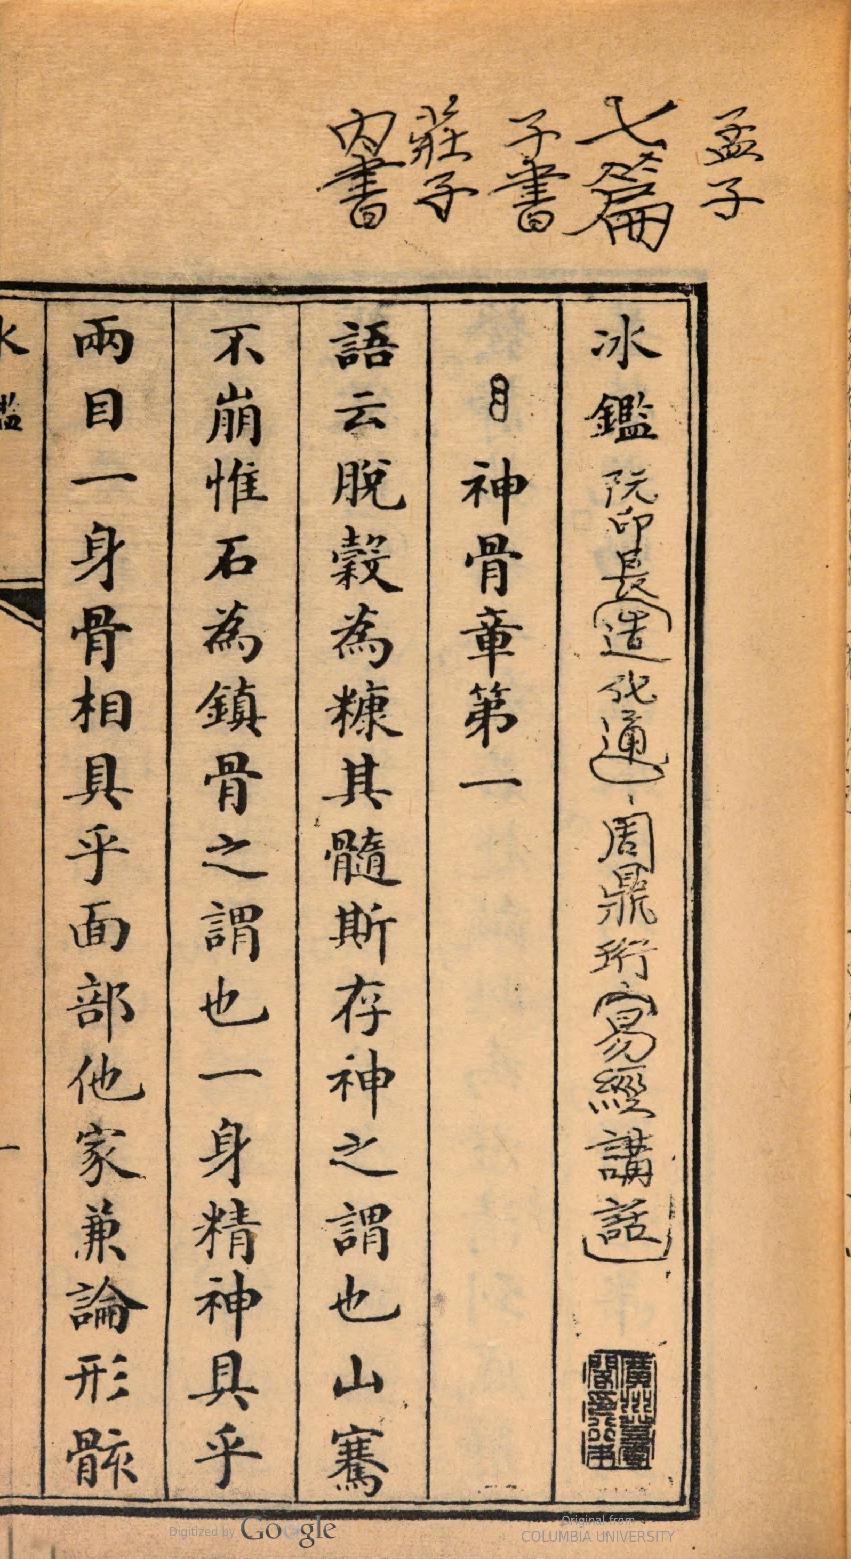 孟子
七篇
子書
莊子
內書
冰鑑 阮印長造化通 周鼎珩易經講話
神骨章第一
語云脫穀為糠其髓斯存神之謂也山騫
不崩惟石為鎮骨之謂也一身精神具乎
兩目一身骨相具乎面部他家兼論形骸
冰鑑
一
Digitized by Google
Original from
COLUMBIA UNIVERSITY